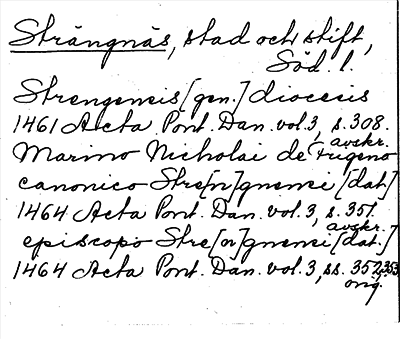 Strängnäs, stad och stift,
Söd. l.
Strengensis [gen.] diocesis
1461 Acta Pont. Dan. vol. 3, s. 308.
avskr.
Marino Nicholai de Frigeno
canonico Stre[n]gnensi [dat.]
1464 Acta Pont. Dan. vol. 3, s. 351.
avskr.
episcopo Stre[n]gnensi [dat.]
1464 Acta Pont. Dan. vol. 3, ss. 352, 353
orig.